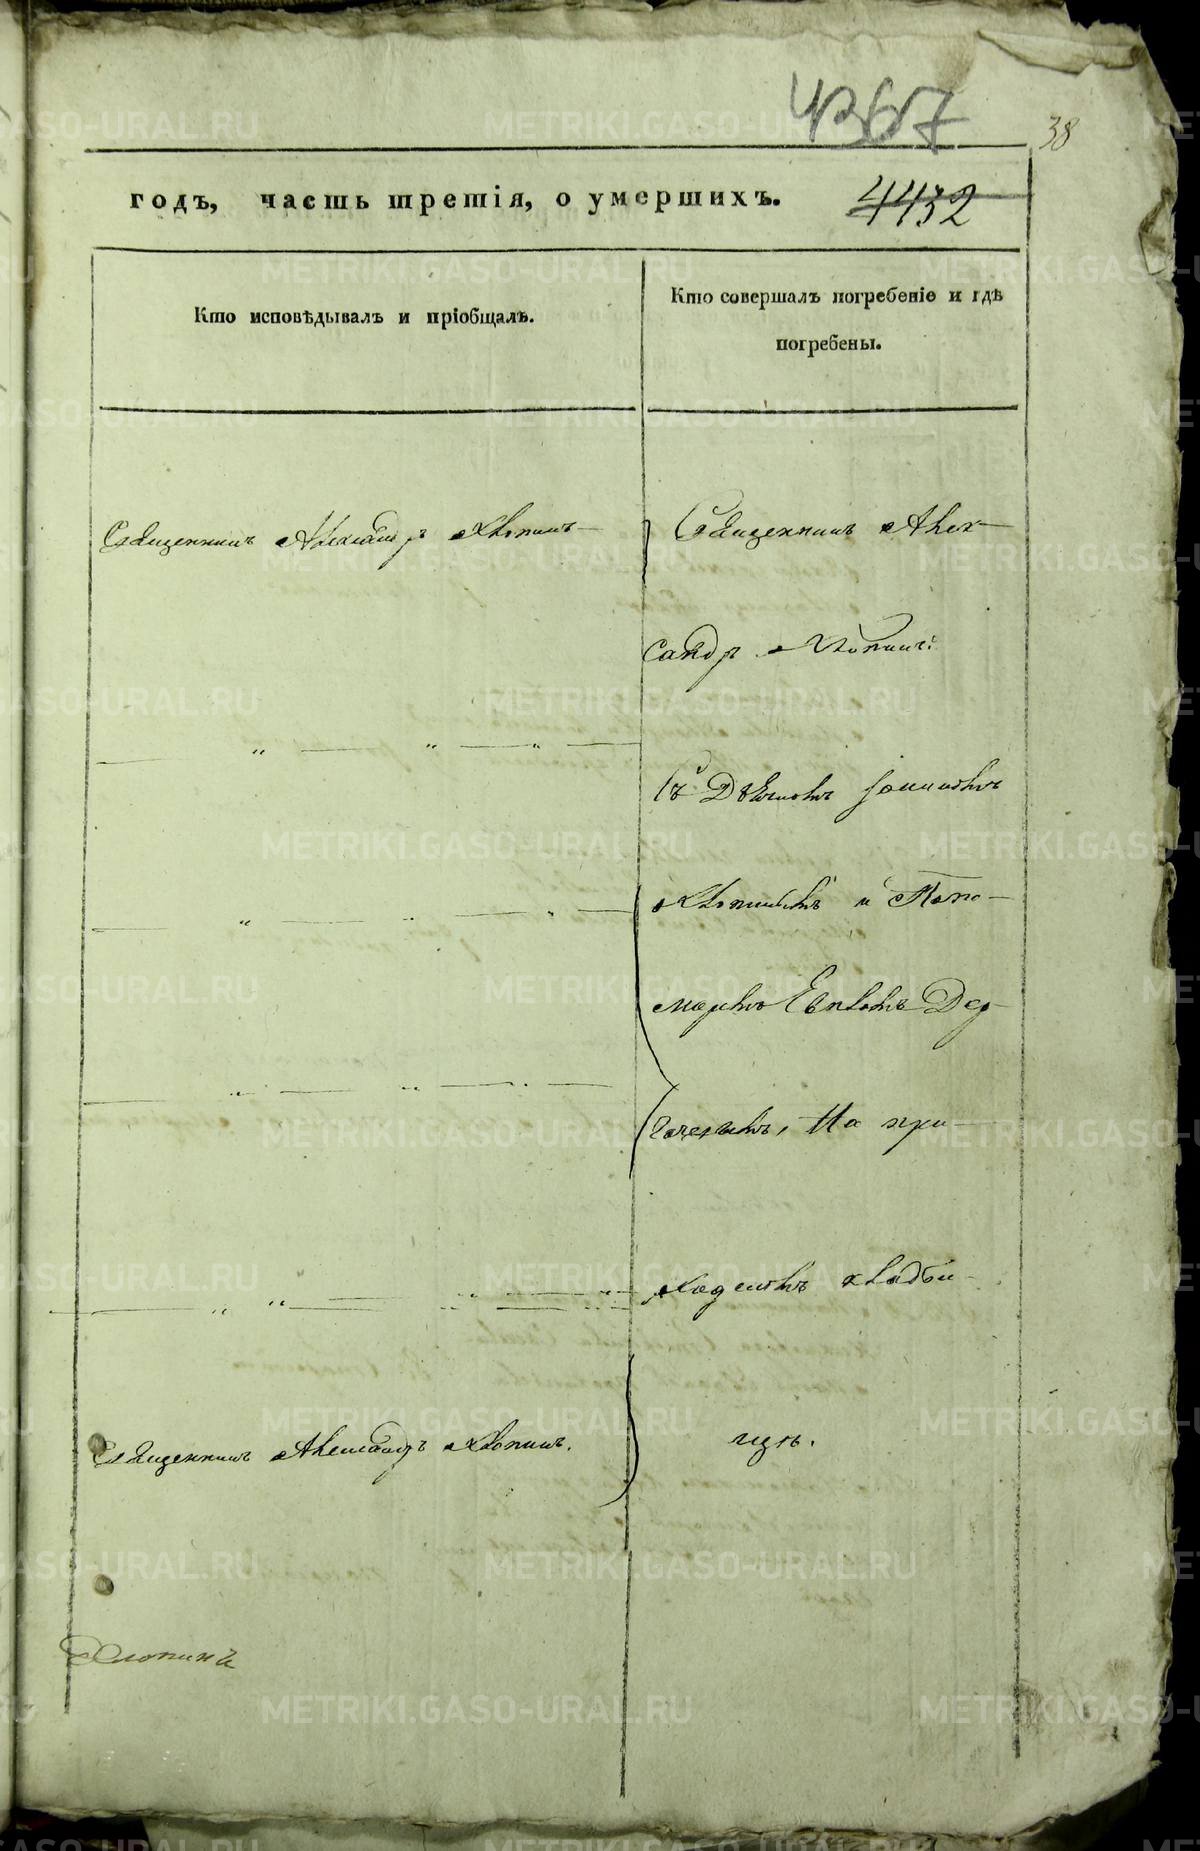 4367
38
годъ, часть третія, о умершихъ.
4432
Кто исповѣдывалъ и пріобщалъ.
Кто совершалъ погребеніе и гдѣ
погребены.
Священникъ Александръ Хлопинъ
Священникъ Алек-
сандръ Хлопинъ
Съ Дьячкомъ Іоанномъ
Хлопинымъ и Поно-
маремъ
На при-
ходскомъ кладби-
щѣ.
Священникъ Александръ Хлопинъ.
Хлопинъ
METRIKI.GASO-URAL.RU